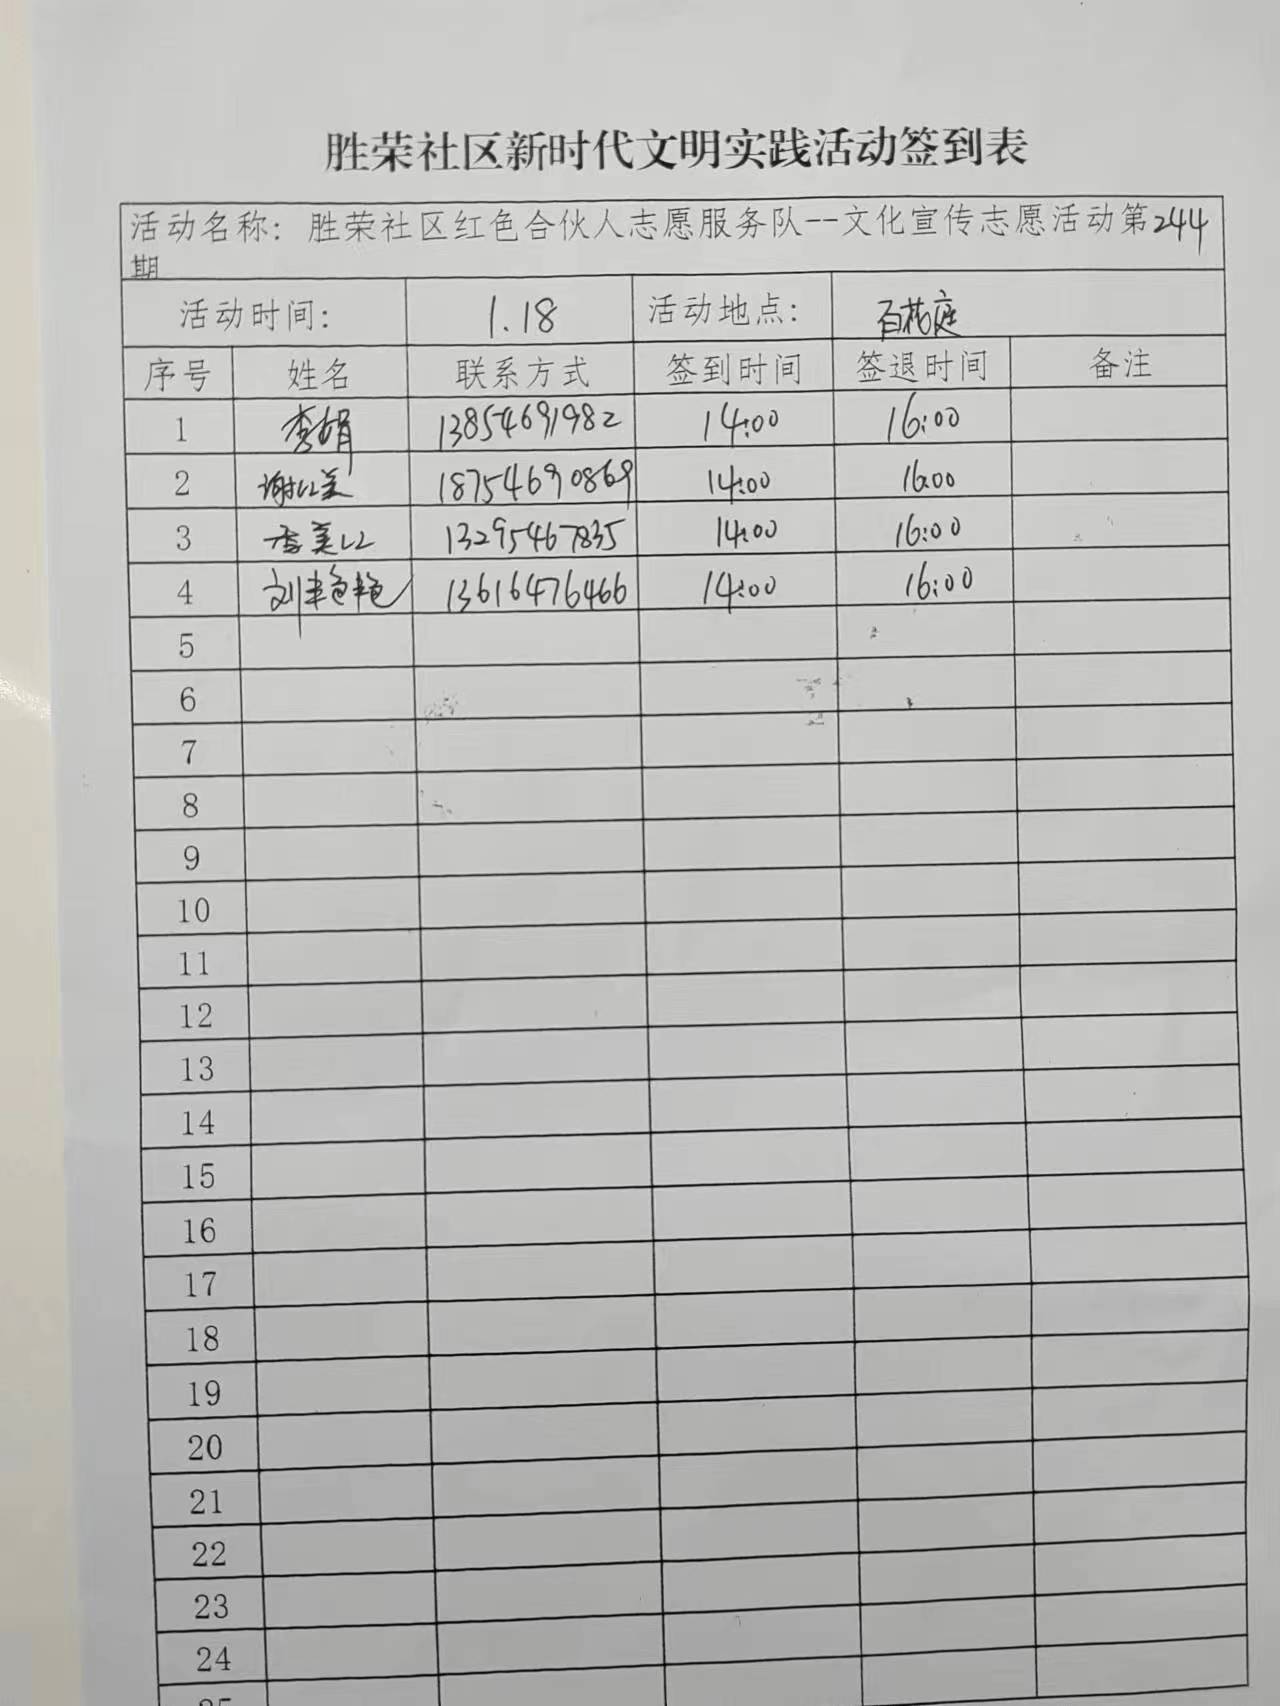 胜荣社区新时代文明实践活动签到表
活动名称：胜荣社区红色合伙人志愿服务队--文化宣传志愿活动第244
期
活动时间： 1.18 活动地点： 百花庭
序号 姓名 联系方式 签到时间 签退时间 备注
1 李娟 13854691982 14:00 16:00
2 谢红美 18754690869 14:00 16:00
3 李美红 13295467835 14:00 16:00
4 刘艳艳 13616476466 14:00 16:00
5
6
7
8
9
10
11
12
13
14
15
16
17
18
19
20
21
22
23
24
25